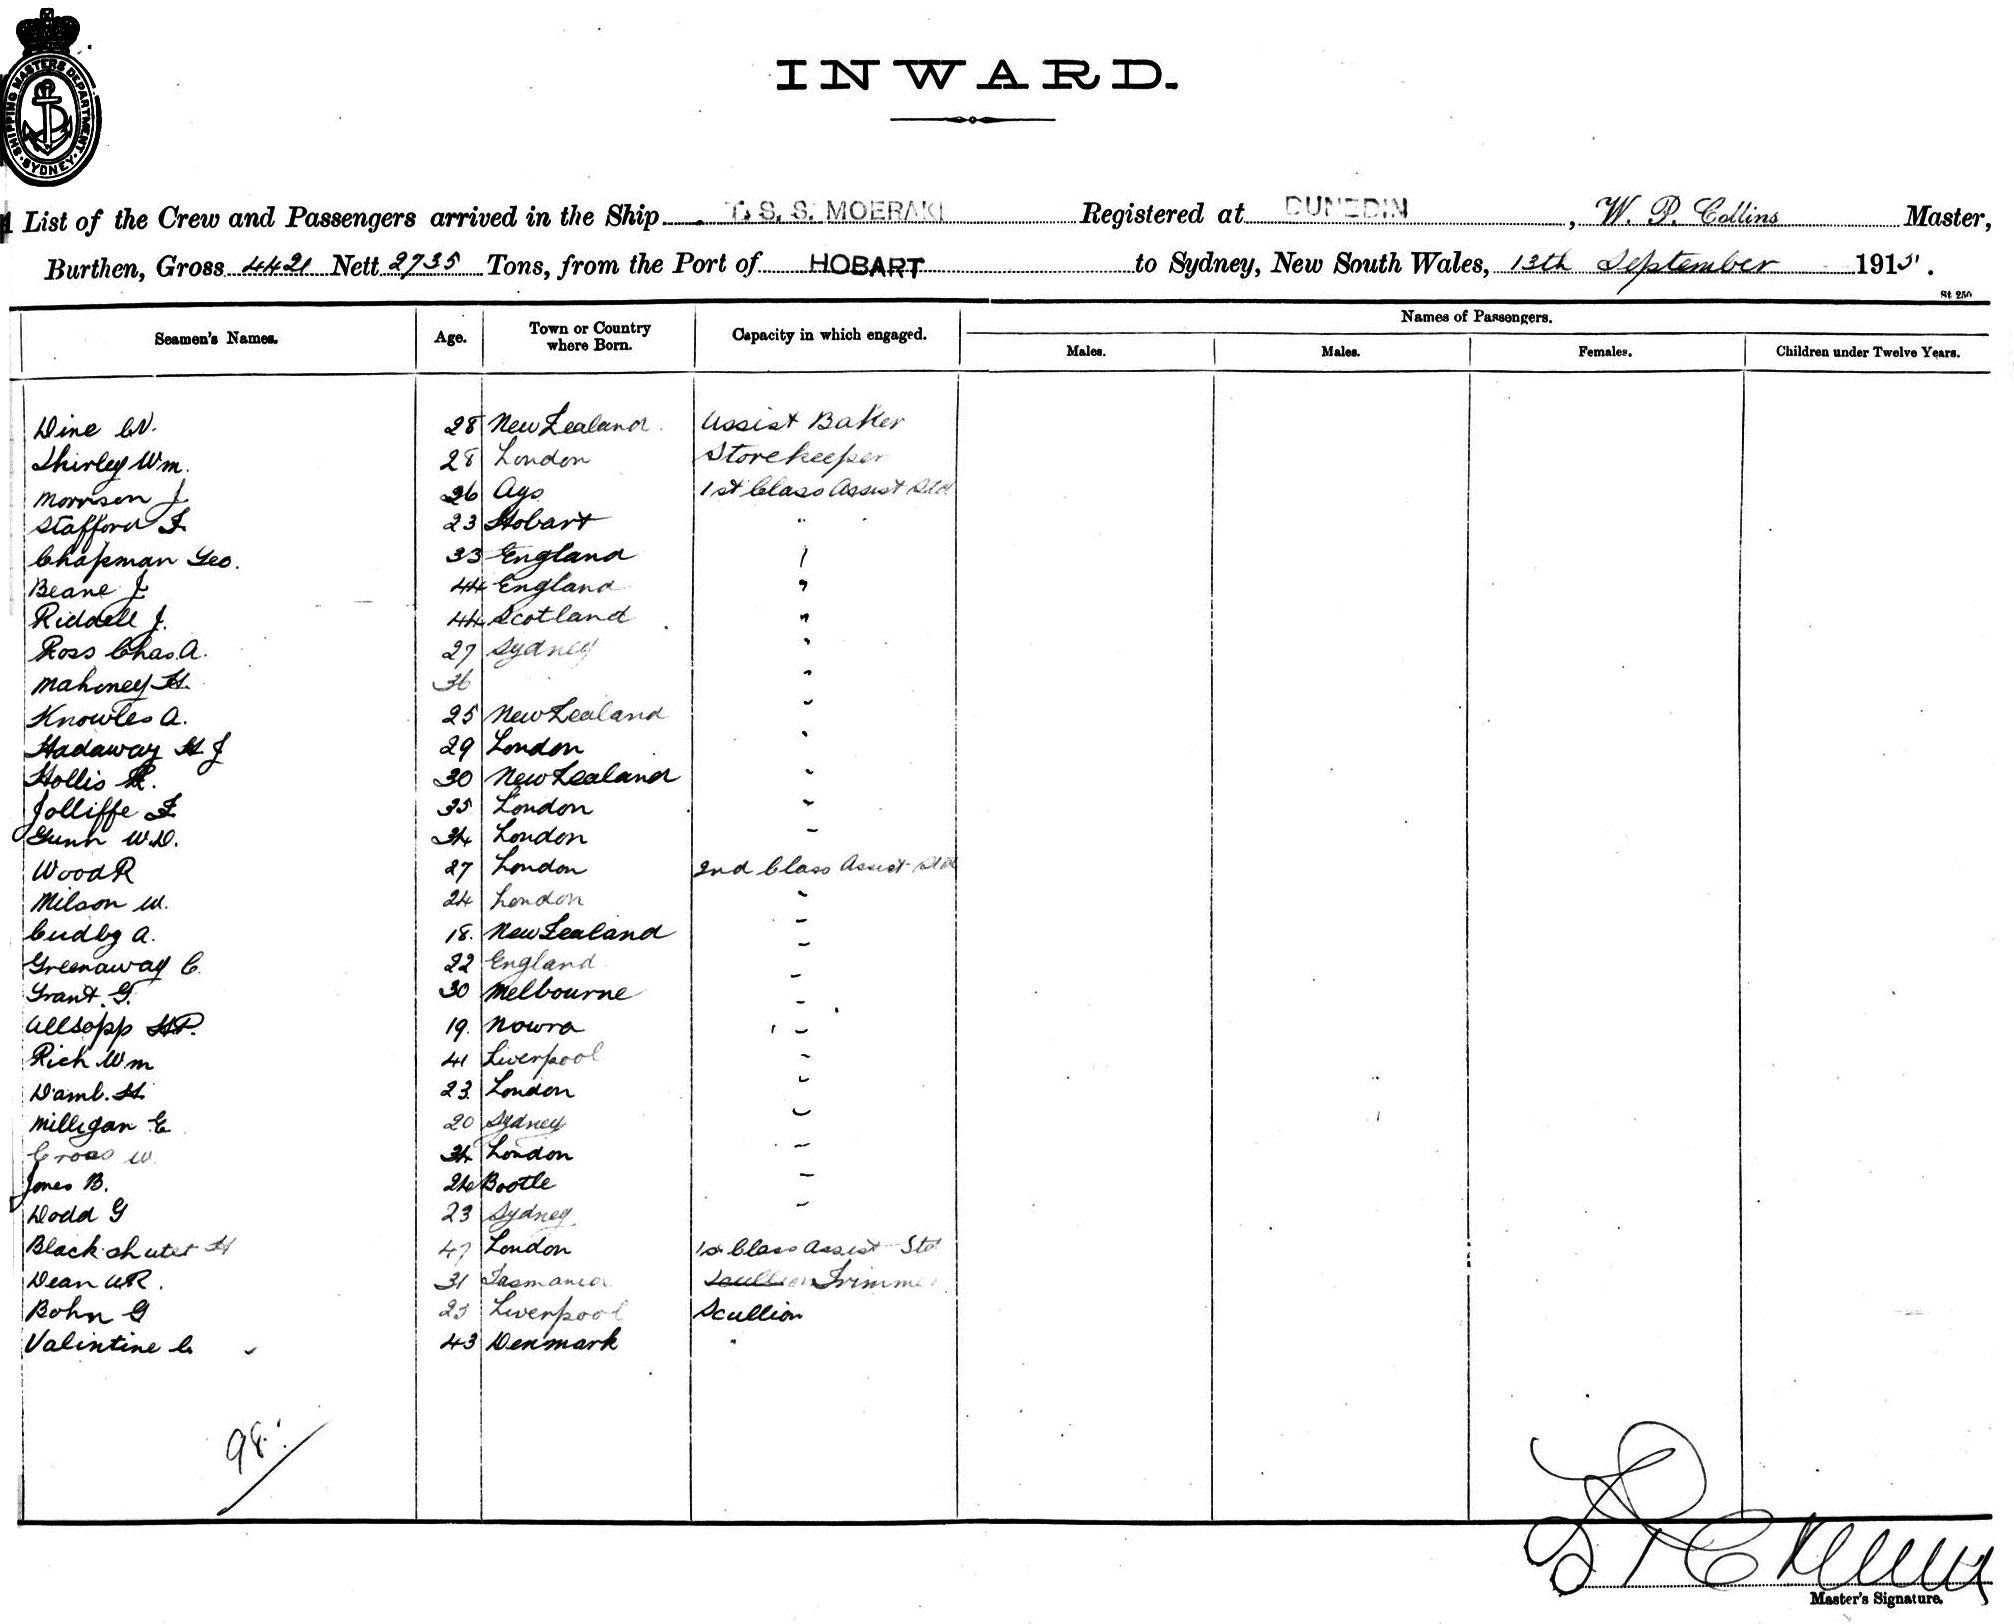 SHIPPING MASTERS DEPARTMENT. SYDNEY.
INWARD.
List of the Crew and Passengers arrived in the Ship T. S. S. MOERAKI Registered at DUNEDIN, W. P. Collins Master,
Burthen, Gross 4421 Nett 2735 Tons, from the Port of HOBART to Sydney, New South Wales, 13th September 1915.
St 250
Seamen's Names. Age. Town or Country where Born. Capacity in which engaged. Names of Passengers.
Males. Males. Females. Children under Twelve Years.
Dine 28 New Zealand. Assist Baker
Shirley Wm. 28 London Storekeeper
Morrison J 26 1st Class Assist Std
Stafford F 23 Hobart "
Chapman Geo. 33 England "
Beane J 44 England "
Riddell J. 44 Scotland "
Ross Chas. A. 27 Sydney "
Mahoney H. 36 "
Knowles A. 25 New Zealand "
Hadaway H J 29 London "
Hollis R. 30 New Zealand "
Jolliffe F 35 London "
Gunn W.D. 34 London "
Wood R 27 London 2nd Class Assist Std
Milson W. 24 London "
Cudby A. 18. New Zealand "
Greenaway C. 22 England "
Grant. G. 30 Melbourne "
Allsopp H.P. 19. Nowra "
Rich Wm 41 Liverpool "
Damb. H 23. London "
Milligan E 20 Sydney "
Cross W. 34 London "
Jones B. 24 Bootle "
Dodd G 23 Sydney "
Blackshuter H 47 London 1st Class Assist Std
Dean W.R. 31 Tasmania Scullion Trimmer
Bohn G 23 Liverpool Scullion
Valintine C. 43 Denmark "
98
Master's Signature.